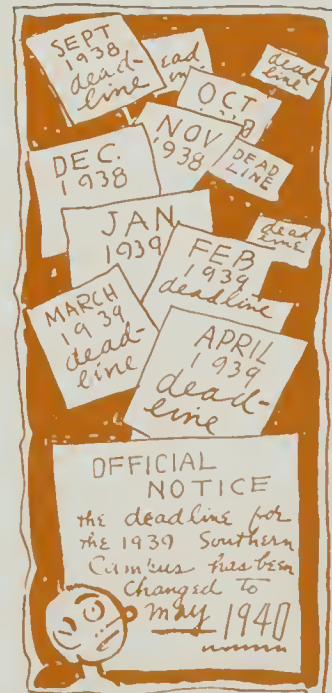 SEPT
1938
dead-
line
ead
ine
dead-
line
OCT
NOV
1938
DEAD
LINE
DEC.
1938
JAN
1939
dead
line
FEB
1939
deadline
MARCH
1939
dead-
line
APRIL
1939
dead-
line
OFFICIAL
NOTICE
the deadline for
the 1939 Southern
Campus has been
changed to
may 1940